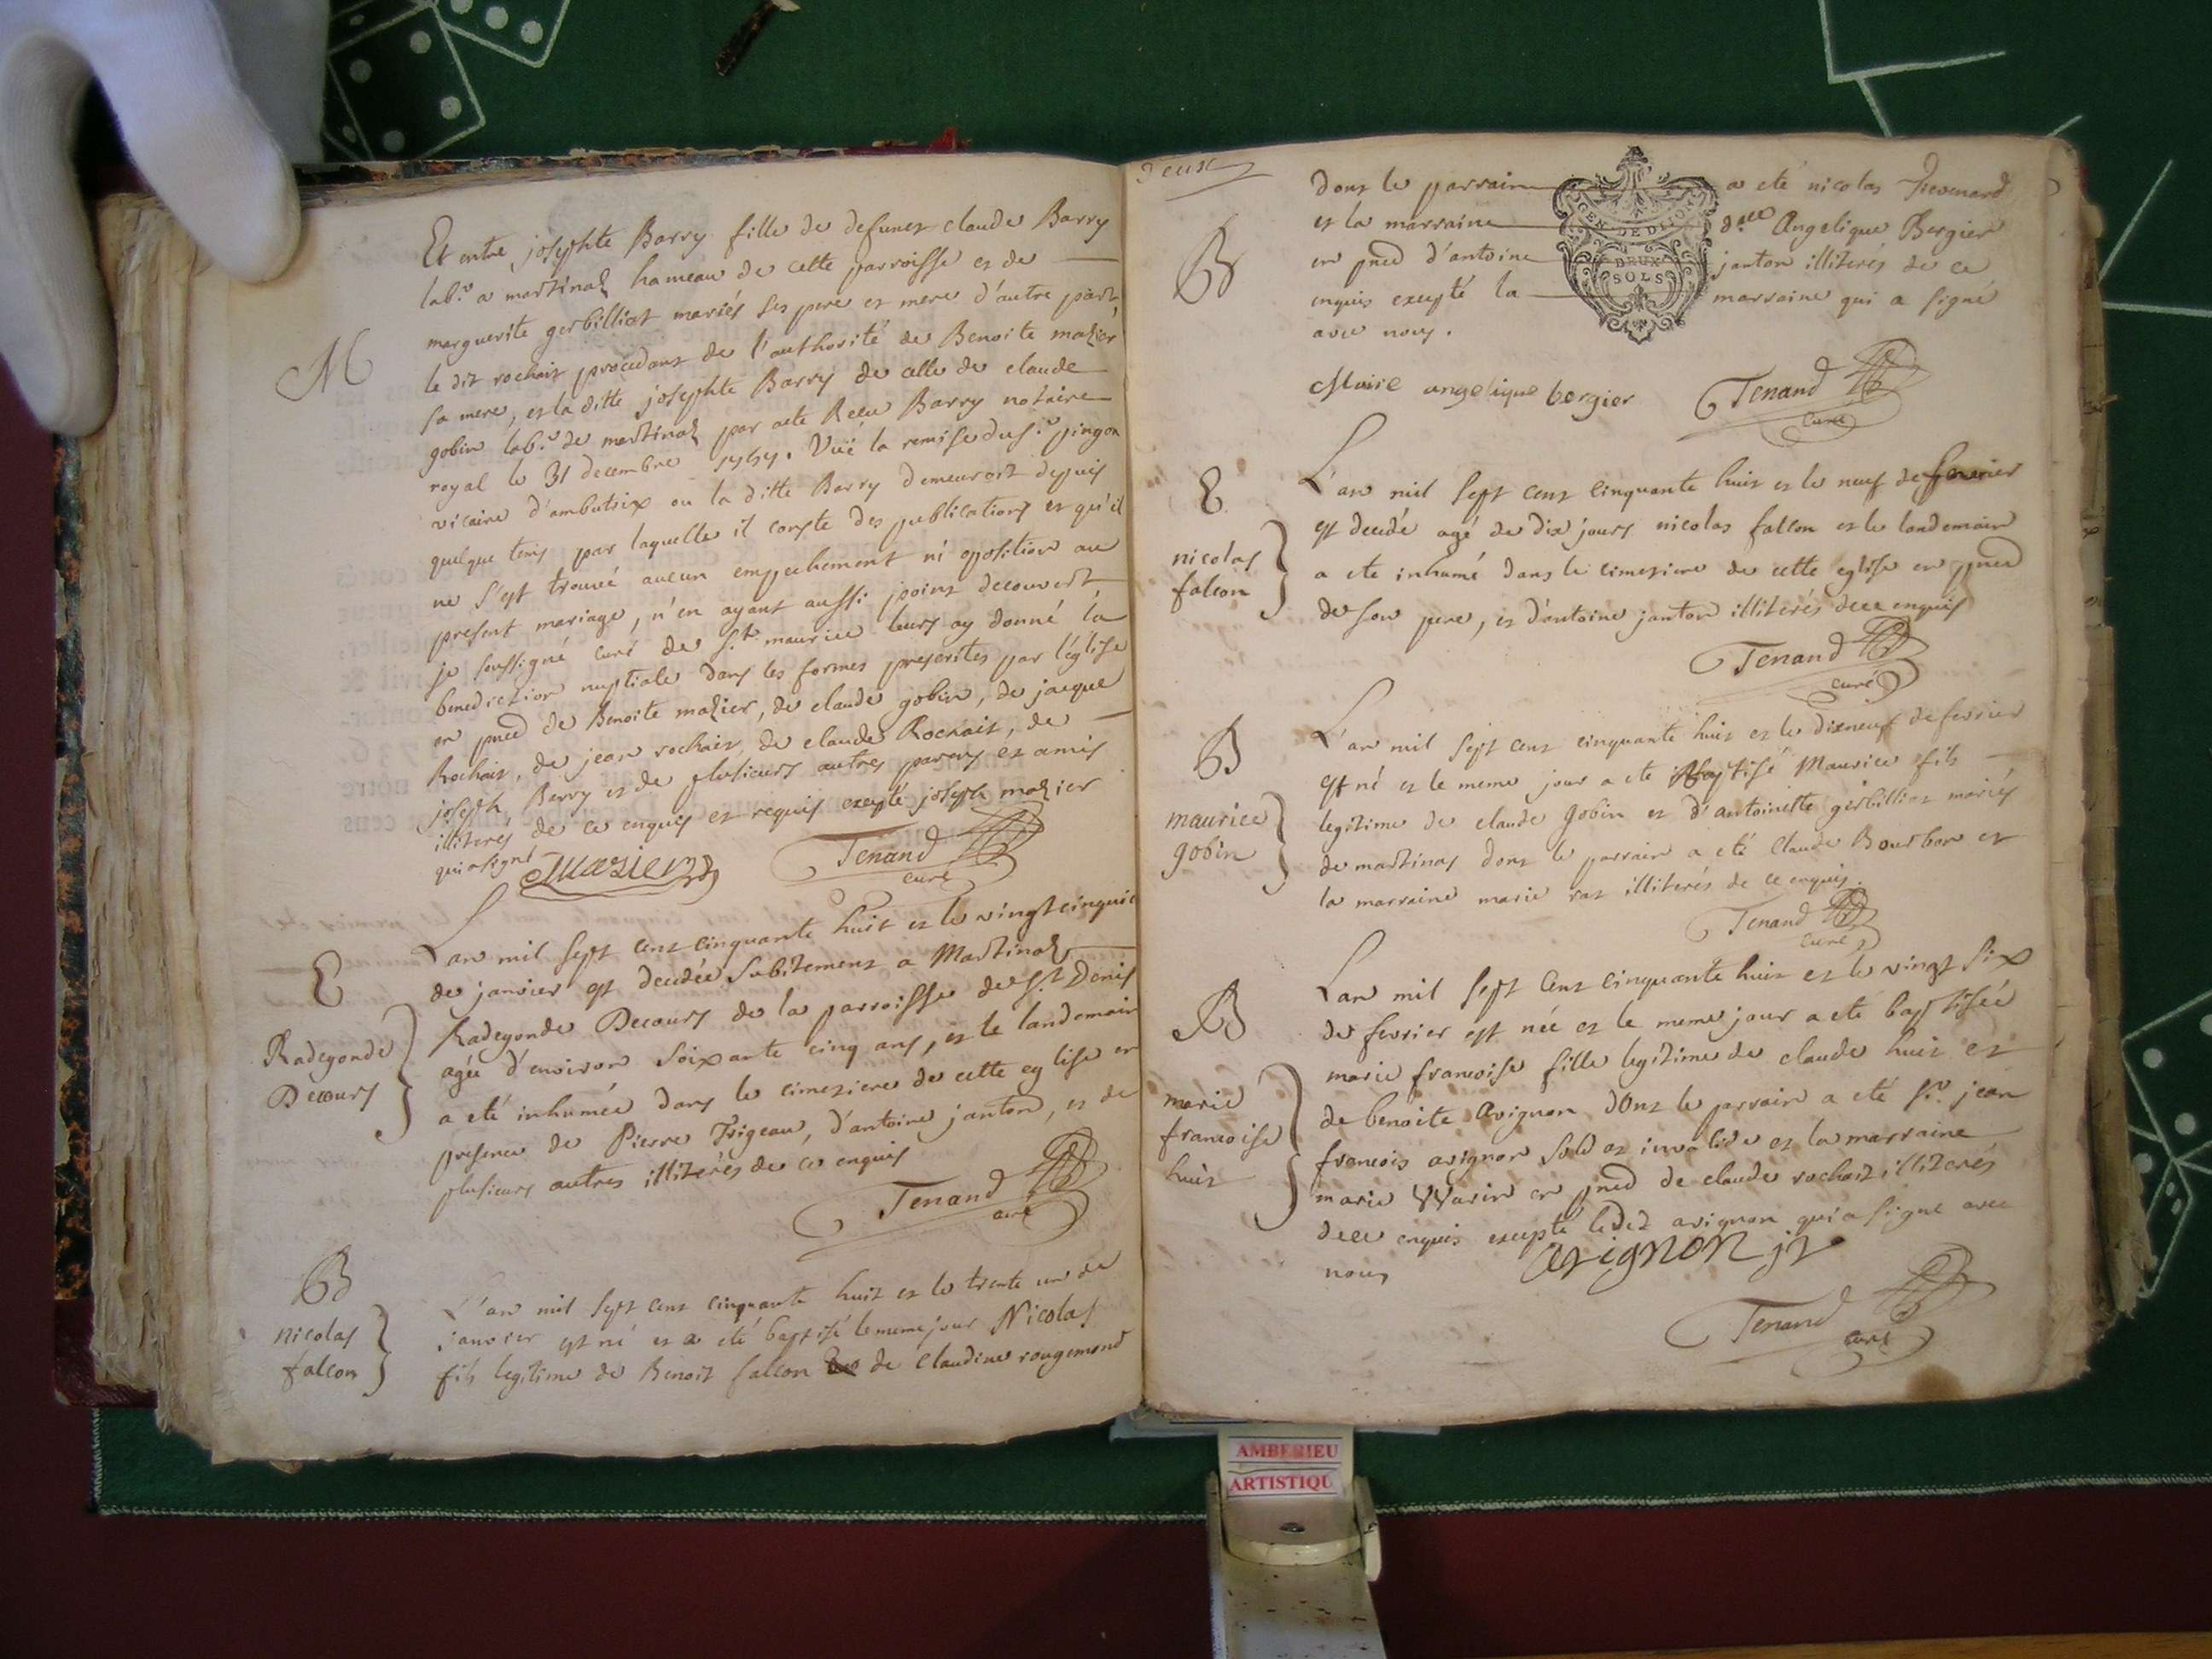 Et entre josephte Barry fille de defunct claude Barry
lab.r a martinaz hameau de cette parroisse et de
M
marguerite gerbilliat mariés ses pere et mere d'autre part
le dit rochait procedant de l'authorité de Benoite mazier
sa mere, et la ditte josephte Barry de celle de claude
gobin lab.r de martinaz par acte Recu Barry notaire
royal le 31 decembre 1757. Vüe la remise du s.r pingon
vicaire d'ambutrix ou la ditte Barry demeuroit depuis
quelque tems par laquelle il conste des publications et qu'il
ne s'est trouvé aucun empechement ni oposition au
present mariage, n'en ayant aussi point decouvert
je soussigné curé de s.t maurice leurs ay donné la
benediction nuptiale dans les formes prescrites par l'église
en pnce de Benoite mazier, de claude gobin, de jacque
Rochait, de jean rochait, de claude Rochait, de
joseph Barry et de plusieurs autres parens et amis
illiterés de ce enquis et requis excepté joseph mazier
qui a signé Mazier Tenand
curé
E
Radegonde
Decours
L'an mil sept cent cinquante huit et le vingtcinquie
de janvier est decedée subitement a Martinaz
Radegonde Decours de la parroisse de s.t Denis
agée d'environ soixante cinq ans, et le landemain
a eté inhumée dans le cimetiere de cette eglise en
presence de Pierre Trigeau, d'antoine janton, et de
plusieurs autres illiterés de ce enquis
Tenand
curé
B
nicolas
falcon
L'an mil sept cent cinquante huit et le trente un de
janvier est né et a eté baptisé le meme jour Nicolas
fils legitime de Benoit falcon de Claudine rougemond
deux
B
dont le parrain a eté nicolas
et la marraine d.lle Angelique Bergier
en pnce d'antoine janton illiterés de ce
enquis excepté la marraine qui a signé
avec nous.
GEN. DE DIJON
DEUX
SOLS
Marie angelique bergier Tenand
curé
E
nicolas
falcon
L'an mil sept cent cinquante huit et le neuf de fevrier
est decedé agé de dix jours nicolas falcon et le landemain
a eté inhumé dans le cimetiere de cette eglise en pnce
de son pere, et d'antoine janton illiterés de ce enquis
Tenand
curé
B
maurice
gobin
L'an mil sept cent cinquante huit et le dixneuf de fevrier
est né et le meme jour a eté baptisé Maurice fils
legitime de claude gobin et d'antoinette gerbilliat mariés
de martinas dont le parrain a eté Claude Bourbon et
la marraine marie rat illiterés de ce enquis.
Tenand
curé
B
marie
francoise
huit
L'an mil sept cent cinquante huit et le vingt six
de fevrier est née et le meme jour a eté baptisée
marie francoise fille legitime de claude huit et
de benoite avignon dont le parrain a eté s.r jean
francois avignon soldat invalide et la marraine
marie Warin en pnce de claude rochait illiterés
de ce enquis excepté ledit avignon qui a signé avec
nous avignon jr
Tenand
curé
AMBERIEU
ARTISTIQU